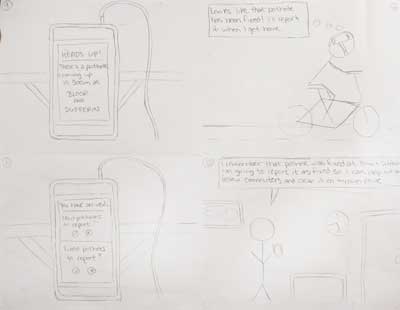 HEADS UP!
There's a pothole
coming up
in 300m at
BLOOR
AND
DUFFERIN
Looks like that pothole
has been fixed! I'll report
it when I get home.
You have arrived.
potholes
to report?
Fixed potholes
to report?
I remember that pothole was fixed at
I'm going to report it as fixed so I can help
commuters and clear it on my